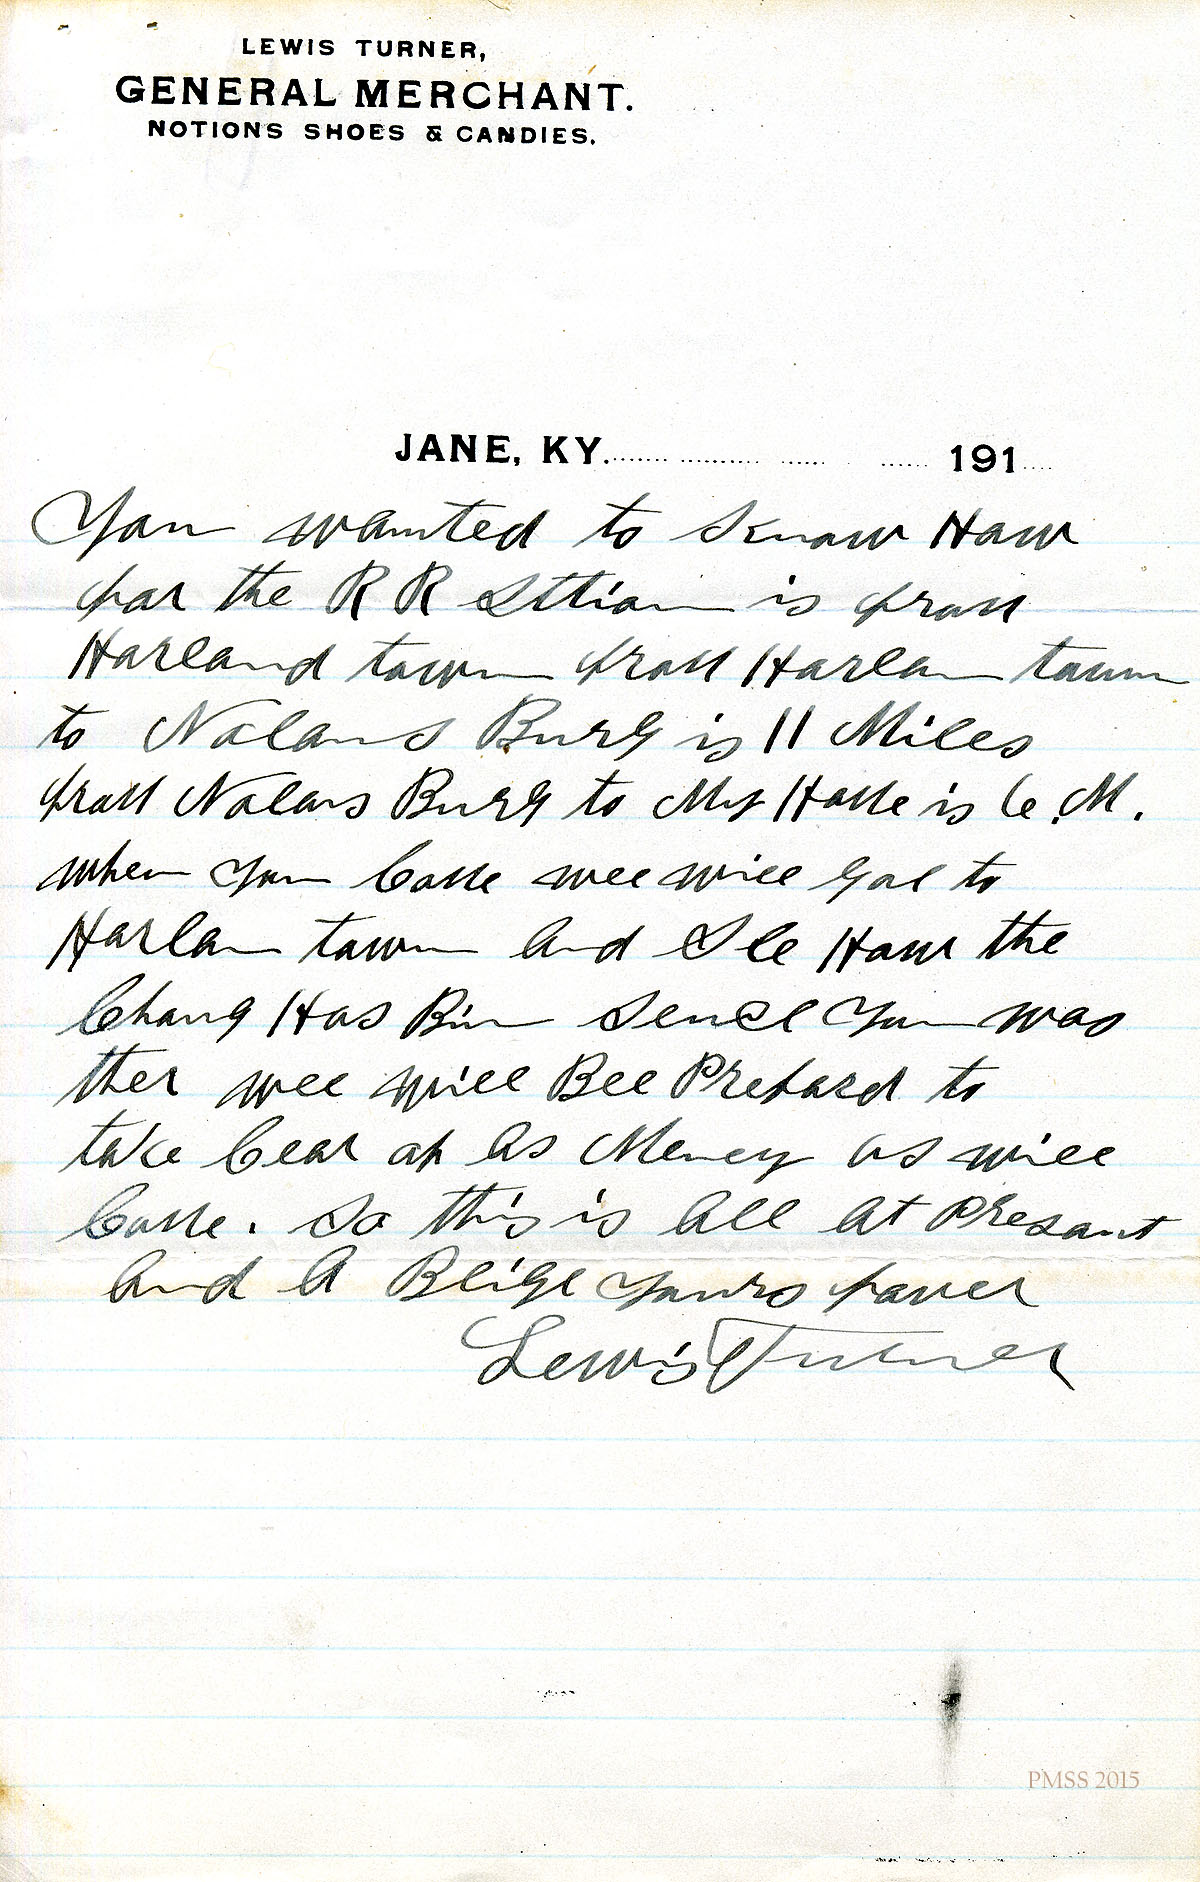 LEWIS TURNER,
GENERAL MERCHANT.
NOTIONS SHOES & CANDIES.
JANE, KY. 191
You wanted to know How
far the R R Sttion is from
Harland town from Harlan town
to Nolans Burg is 11 Miles
from Nolans Burg to My Home is 6 M.
when you Come wee will goe to
Harlan town and See How the
Chang Has Bin Sence you was
ther wee will Bee Prepard to
take Cear of as Meney as will
Come. So this is all at Presant
and A Blige yours faver
Lewis Turner
PMSS 2015